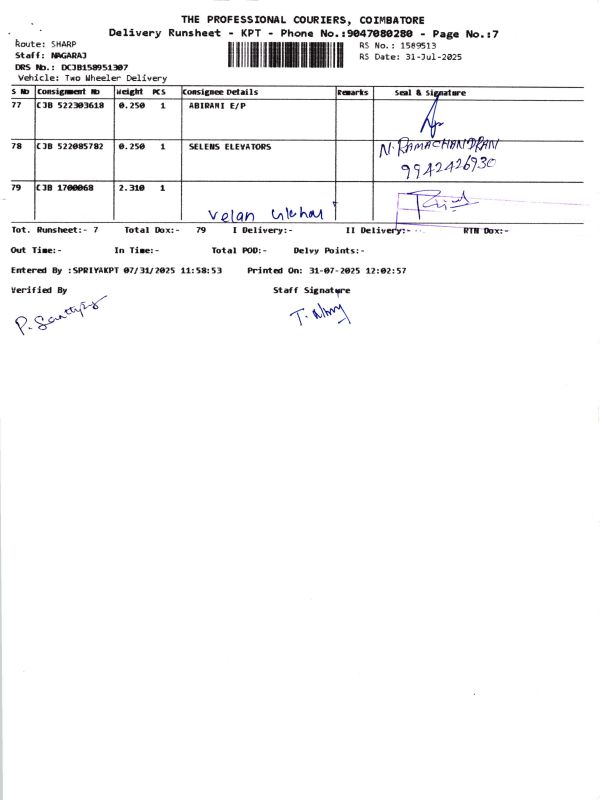 THE PROFESSIONAL COURIERS, COIMBATORE
Delivery Runsheet - KPT - Phone No.:9047080280 - Page No.:7
Route: SHARP RS No.: 1589513
Staff: NAGARAJ RS Date: 31-Jul-2025
DRS No.: DCJB158951307
Vehicle: Two Wheeler Delivery
S No Consignment No Weight PCS Consignee Details Remarks Seal & Signature
77 CJB 522303618 0.250 1 ABIRAMI E/P
78 CJB 522085782 0.250 1 SELENS ELEVATORS N. RAMACHANDRAN
9942426930
79 CJB 1700068 2.310 1
Velan
Tot. Runsheet:- 7 Total Dox:- 79 I Delivery:- II Delivery:- RTN Dox:-
Out Time:- In Time:- Total POD:- Delvy Points:-
Entered By :SPRIYAKPT 07/31/2025 11:58:53 Printed On: 31-07-2025 12:02:57
Verified By Staff Signature